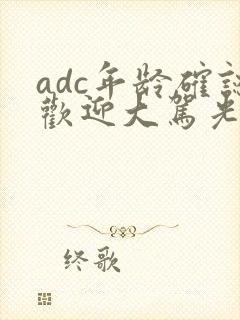 adc年龄確認
歡迎大駕光
终歌